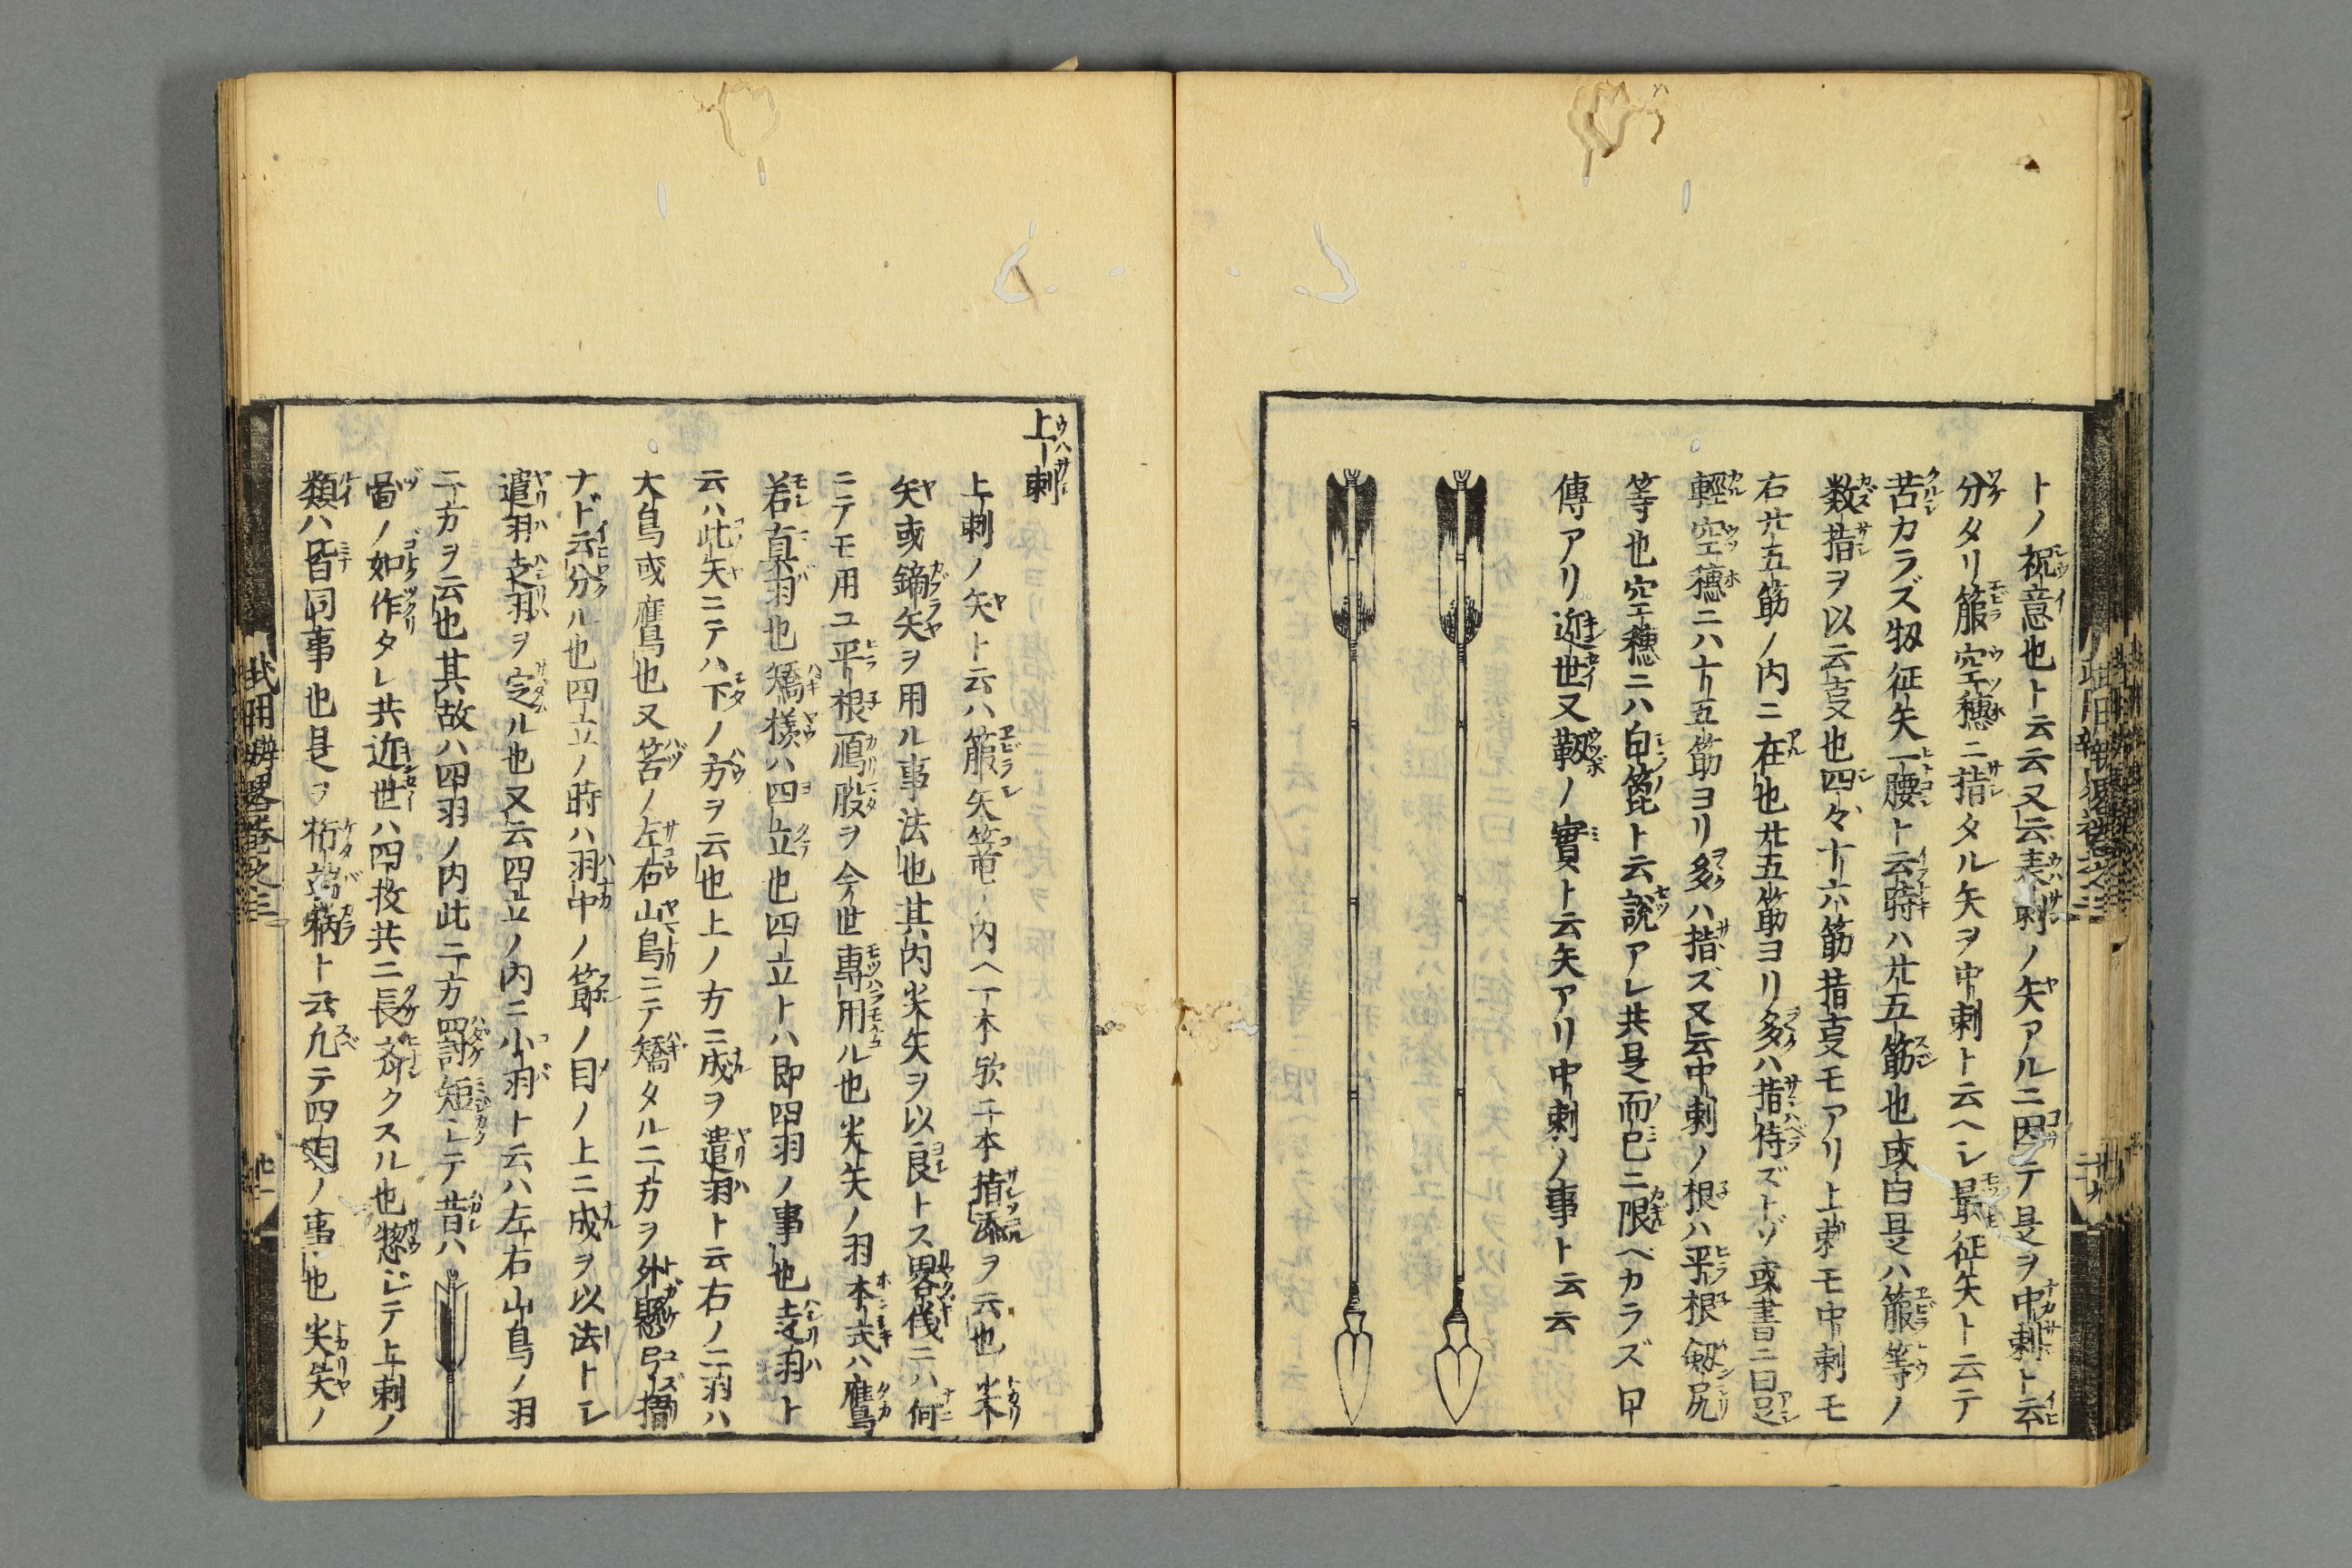 トノ祝意也ト云云又云表刺ノ矢アルニ因テ是ヲ中刺ト云
分タリ箙空穗ニ揩タル矢ヲ中刺ト云ヘシ最征矢ト云テ
苦カラズ扨征矢一腰ト云時ハ廿五筋也或曰是ハ箙等ノ
数揩ヲ以云叓也四々十六筋揩叓モアリ上刺モ中刺モ
右廿五筋ノ内ニ在也廿五筋ヨリ多ハ揩侍ズトゾ或書ニ曰足
輕空穗ニハ十五筋ヨリ多ハ揩ズ又云中刺ノ根ハ平根劔尻
等也空穗ニハ白箆ト云説アレ共是而已ニ限ベカラズ口
傳アリ近世又靱ノ實ト云矢アリ中刺ノ事ト云云
上刺
上刺ノ矢ト云ハ箙矢篭ノ内ヘ一本欤二本揩添ヲ云也尖
矢或鏑矢ヲ用ル事法也其内尖矢ヲ以良トス畧儀ニハ何
ニテモ用ユ平根鴈股ヲ今世專用ル也尖矢ノ羽本式ハ鷹
若真羽也矯樣ハ四立也四立トハ即四羽ノ事也走羽ト
云ハ此矢ニテハ下ノ方ヲ云也上ノ方ニ成ヲ遣羽ト云右ノ二羽ハ
大鳥或鷹也又筈ノ左右山鳥ニテ矯タル二方ヲ外懸弓揩
ナド云分ル也四立ノ時ハ羽中ノ節ノ目ノ上ニ成ヲ以法トシ
遣羽走羽ヲ定ル也又云四立ノ内ニ小羽ト云ハ左右山鳥ノ羽
二方ヲ云也其故ハ四羽ノ内此二方短シテ昔ハ
圖ノ如作タレ共近世ハ四枚共ニ長齊クスル也惣ジテ上刺ノ
類ハ皆同事也是ヲ桁端ト云凡テ四羽ノ事也尖矢ノ
武用辨畧卷之三